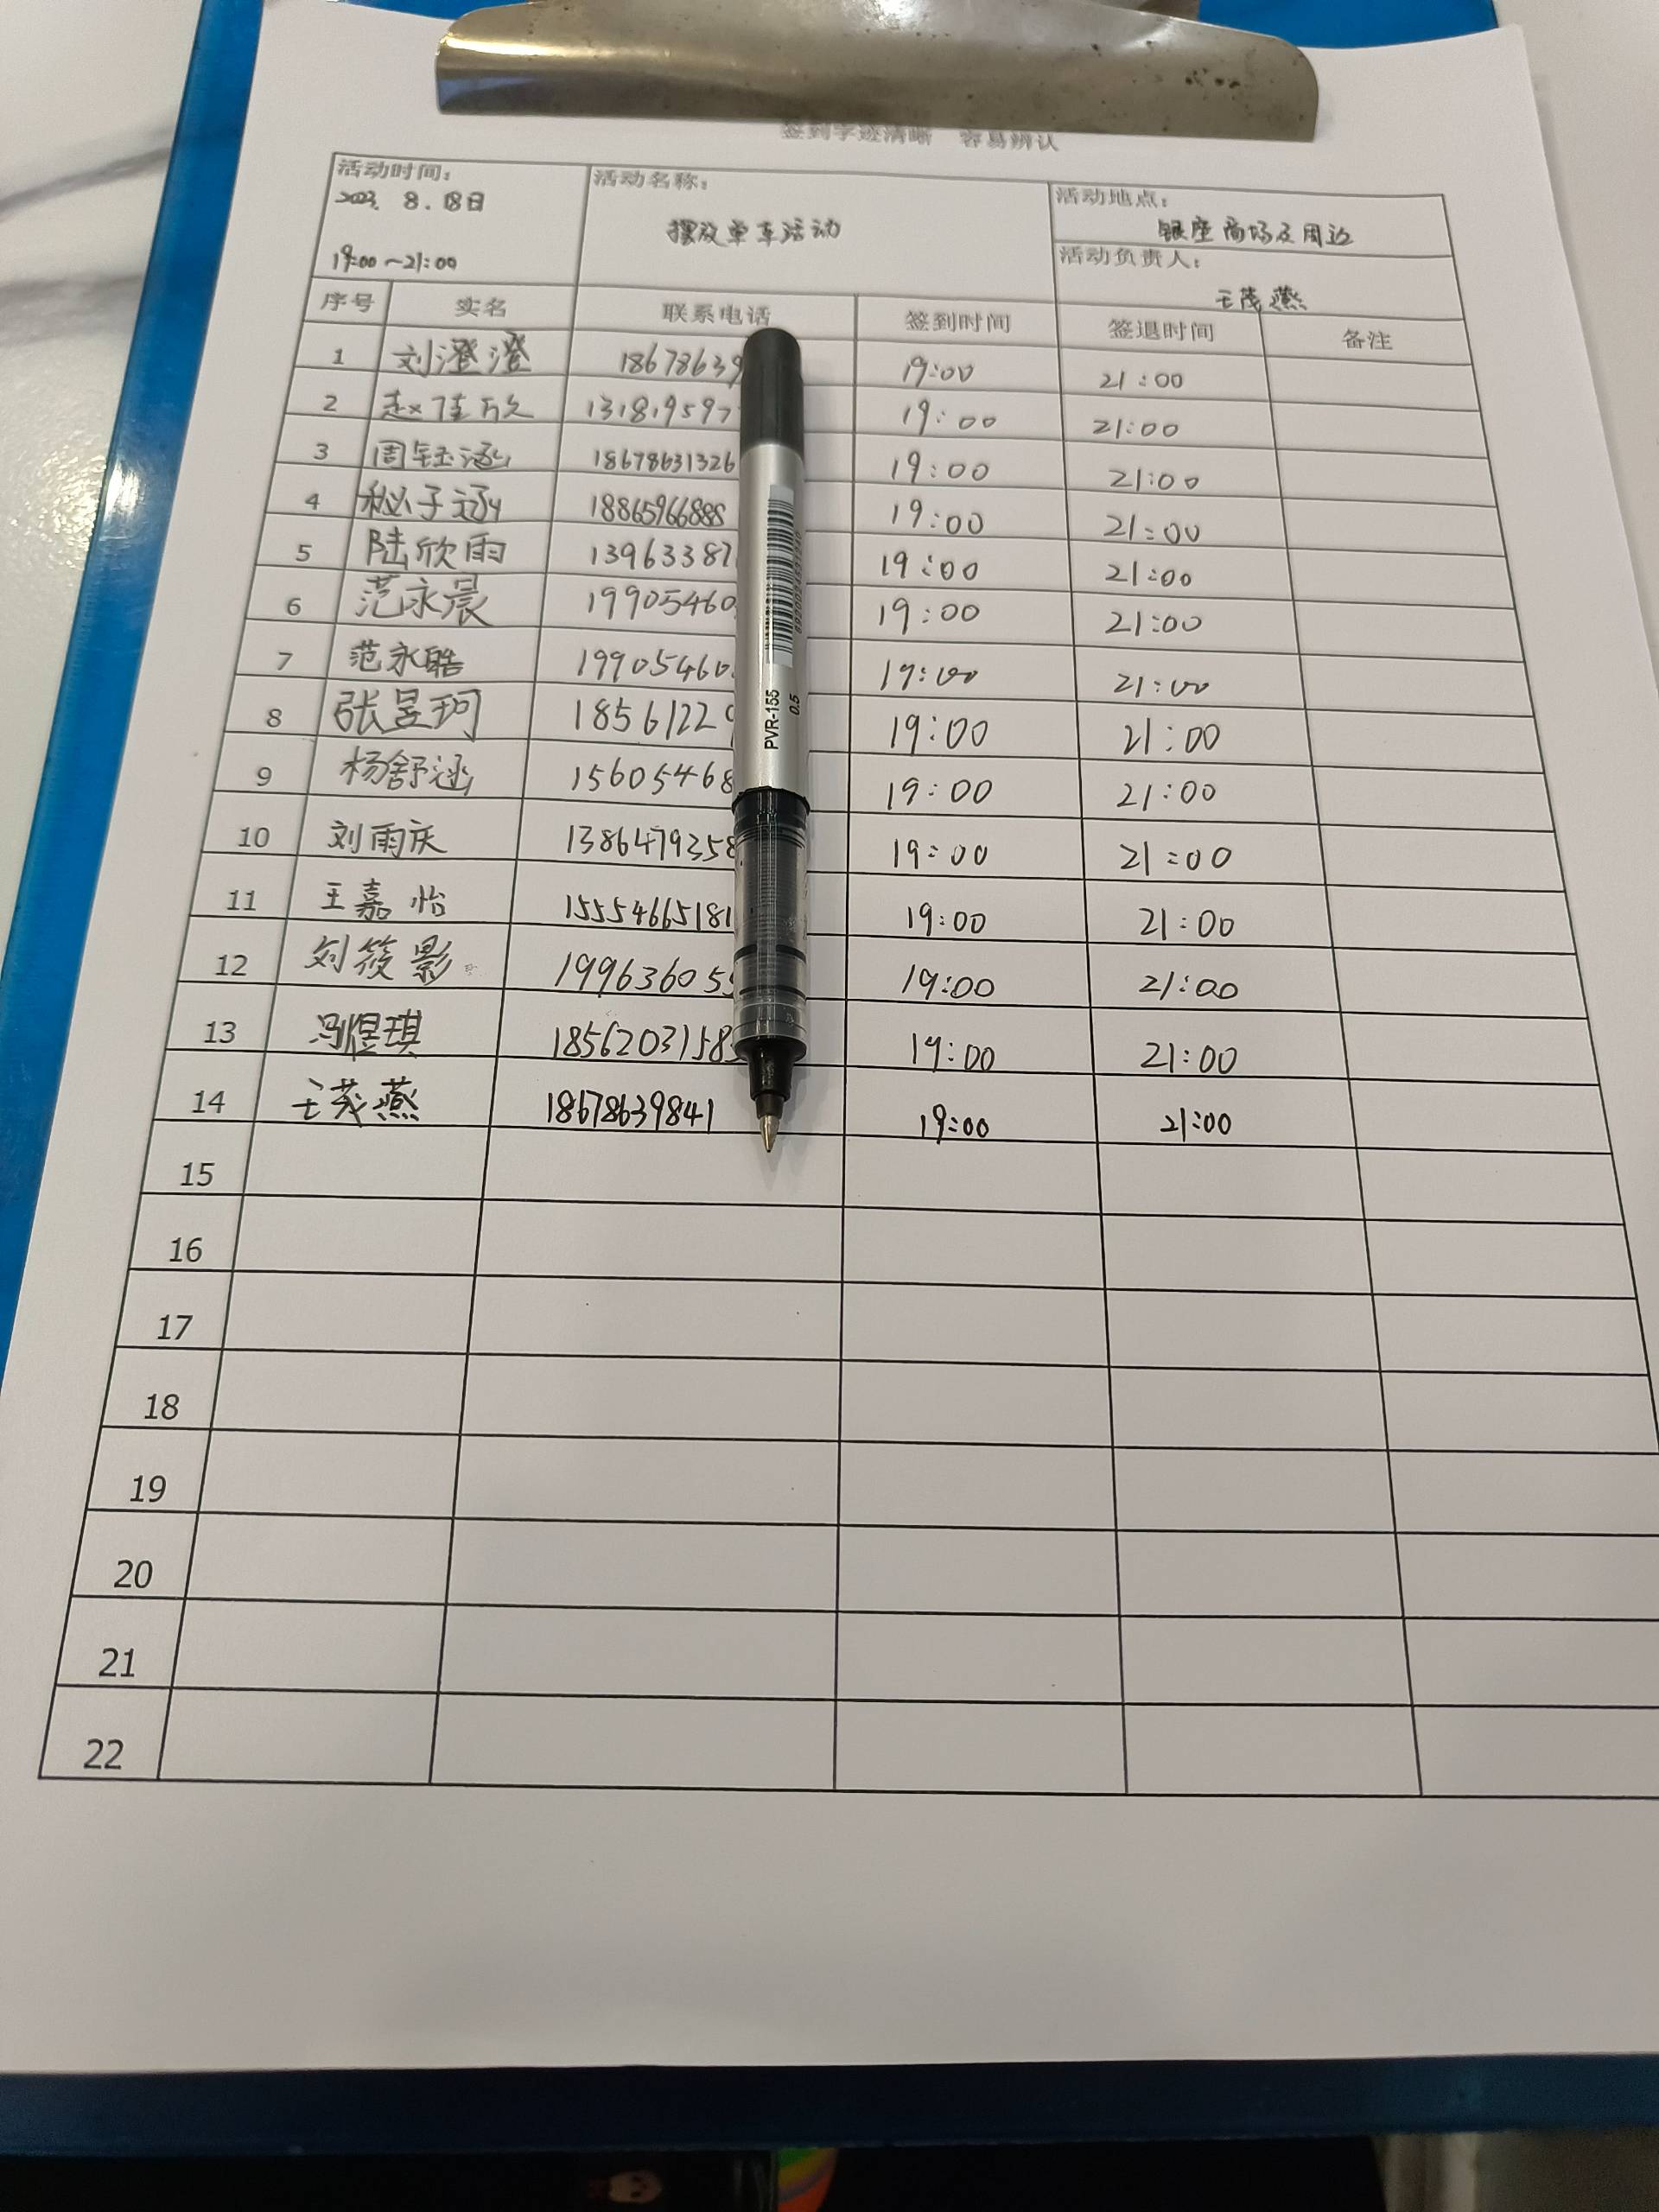 签到字迹清晰 容易辨认
活动时间： 活动名称： 活动地点：
2023. 8. 18日 摆放单车活动 银座商场及周边
19:00～21:00 活动负责人：
王茂燕
序号 实名 联系电话 签到时间 签退时间 备注
1 刘澄澄 18678639 19:00 21:00
2 赵佳欣 131819597 19:00 21:00
3 周钰涵 18678631326 19:00 21:00
4 子涵 18865966888 19:00 21:00
5 陆欣雨 139633871 19:00 21:00
6 范永晨 19905460 19:00 21:00
7 范永皓 19905460 19:00 21:00
8 张昱珂 18561229 19:00 21:00
9 杨舒涵 15605468 19:00 21:00
10 刘雨庆 1386479358 19:00 21:00
11 王嘉怡 15554665181 19:00 21:00
12 刘筱影 199636055 19:00 21:00
13 冯煜琪 1856203158 19:00 21:00
14 王茂燕 18678639841 19:00 21:00
15
16
17
18
19
20
21
22
PVR-155
0.5